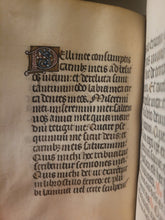 Pelli mee consumptis
carnibus meis adhesit
os meum et derelicta sunt
tantummodo labia cir
ca dentes meos. Miseremi
ni mei miseremini mei
amici mei quia manus
dñi tetigit me Quare per
sequimini me sicut deus et
carnibus meis saturamini
Quis michi ut
sermones mei
Quis michi det ut
in libro stillo ferreo
lamina vel celte sculpan